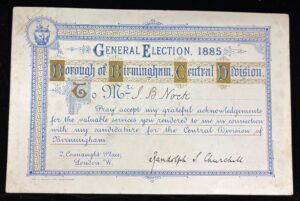 GENERAL ELECTION, 1885
Borough of Birmingham, Central Division.
To Mr. S. B. Nock
Pray accept my grateful acknowledgements
for the valuable services you rendered to me in connection
with my candidature for the Central Division of
Birmingham.
2, Connaught Place,
London. W.
Randolph S. Churchill